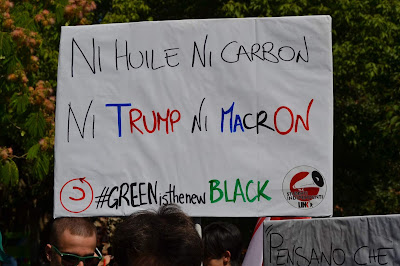 NI HUILE NI CARBON
NI TRUMP NI MACRON
#GREENistheneW BLACK
LINK
PENSANO CHE